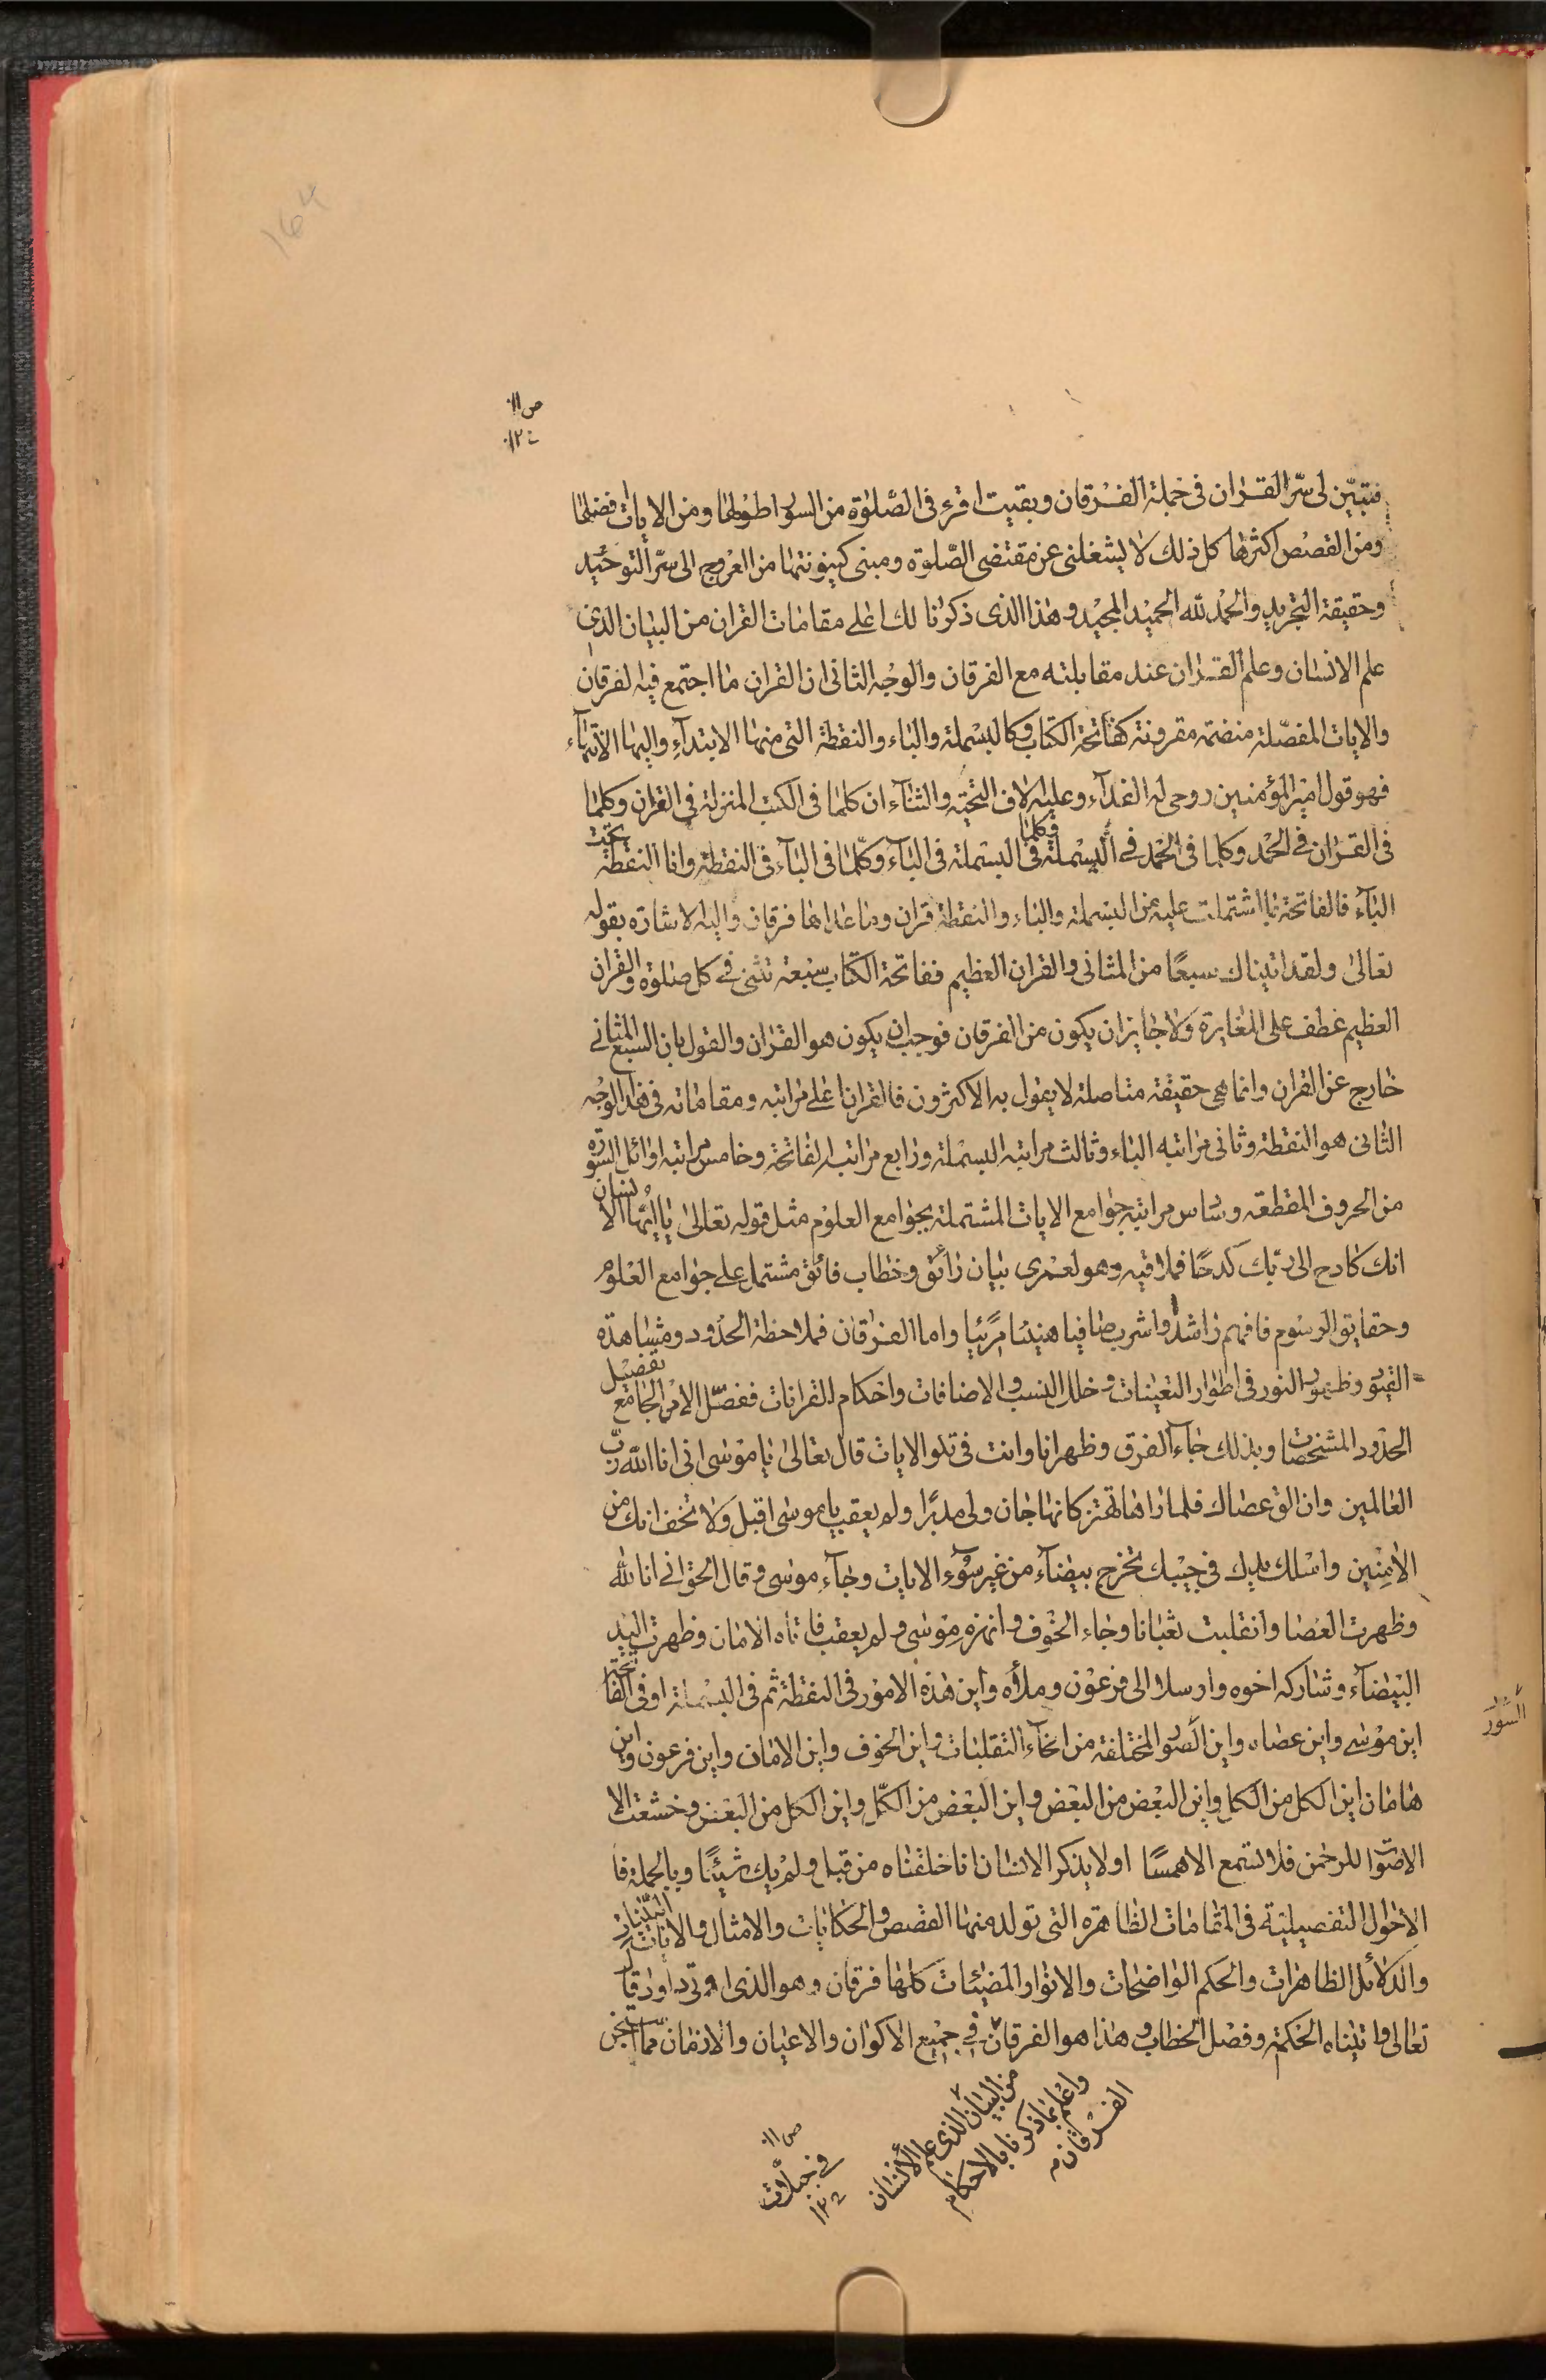 ١٦٤
ص ١١٠
١٢٠
فتبيّن لى سرّ القران فى جملة الفرقان وبقيت اقرء فى الصّلوٰة من السور اطولها ومن الايات فضلها
ومن القصص اكثرها كل ذلك لا يشغلنى عن مقتضى الصّلوة ومبنى كينونتها من العروج الى سرّ التوحيد
وحقيقة التجريد والحمد لله الحميد المجيد وهذا الذى ذكرنا لك اعلى مقامات القران من البيان الذى
علم الانسان وعلم القران عند مقابلته مع الفرقان والوجه الثانى ان القران ما اجتمع فيه الفرقان
والايات المفصّلة منضمة مقرونة كفاتحة الكتاب وكالبسملة والباء والنقطة التى منها الابتدآء واليها الانتهآء
فهو قول امير المؤمنين روحى له الفدآء وعليه الاف التحية والثنآء ان كلما فى الكتب المنزلة فى القران وكلما
فى القران فى الحمد وكلما فى الحمد فى البسملة وكلما فى البسملة فى البآء وكلّما فى البآء فى النقطة وانا النقطة تحت
البآء فالفاتحة بما اشتملت عليه من البسملة والباء والنقطة قران وما عداها فرقان واليه الاشارة بقوله
تعالى ولقد اتيناك سبعًا من المثانى والقران العظيم ففاتحة الكتاب سبعة تثنى فى كل صلوة والقران
العظيم عطف على المغايرة ولا جايز ان يكون من الفرقان فوجب ان يكون هو القران والقول بان السبع المثانى
خارج عن القران وانما هى حقيقة متاصلة لا يقول به الاكثرون فالقران اعلى مراتبه ومقاماته فى هذا الوجه
الثانى هو النقطة وثانى مراتبه الباء وثالث مراتبه البسملة ورابع مراتبه الفاتحة وخامس مراتبه اوائل السورة
من الحروف المقطعة وسادس مراتبه جوامع الايات المشتملة بجوامع العلوم مثل قوله تعالى يا ايّها الانسان
انك كادح الى ربك كدحًا فملاقيه وهو لعمرى بيان رائق وخطاب فائق مشتمل على جوامع العلوم
وحقايق الرسوم فافهم راشدًا واشرب صافيا هنيئا مريئا واما الفرقان فملاحظة الحدود ومشاهدة
القيود وظهور النور فى اطوار التعينات وخلل النسب والاضافات واحكام القرانات ففصّل الامر الجامع تفصيل
الحدود المشخصات وبذلك جاء الفرق وظهر انا وانت فى تلو الايات قال تعالى يا موسى انى انا الله ربّ
العالمين وان الق عصاك فلما راها تهتز كانها جان ولى مدبرًا ولم يعقب يا موسى اقبل ولا تخف انك من
الامنين واسلك يدك فى جيبك تخرج بيضآء من غير سوٓء الايات وجآء موسى و قال الحق انى انا الله
وظهرت العصا وانقلبت ثعبانا وجاء الخوف وانهزم موسى ولم يعقب فاتاه الامان وظهرت اليد
البيضآء وشاركه اخوه وارسلا الى فرعون وملأه واين هذه الامور فى النقطة ثم فى البسملة او فى الفاتحة
اين موسى واين عصاه واين الصور المختلفة من انحآء التقلبات واين الخوف واين الامان واين فرعون واين
السور
هامان اين الكل من الكل واين البعض من البعض واين البعض من الكلّ واين الكل من البعض وخشعت الا
الاصوات للرحمن فلا تسمع الا همسًا اولا يذكر الانسان انا خلقناه من قبل ولم يك شيئًا وبالجملة فا
الاحوال التفصيلية فى المقامات الظاهره التى تولد منها القصص والحكايات والامثال والايات البيّنات
والدلائل الظاهرات والحكم الواضحات والانوار المضيئات كلها فرقان وهو الذى اوتى داود قال
تعالى واتيناه الحكمة وفصل الخطاب وهذا هو الفرقان فى جميع الاكوان والاعيان والازمان فما نحن
من البيان الذى علم الانسان
واعلم بما ذكرنا بالاحكام
الفرقان
ص ١١٠